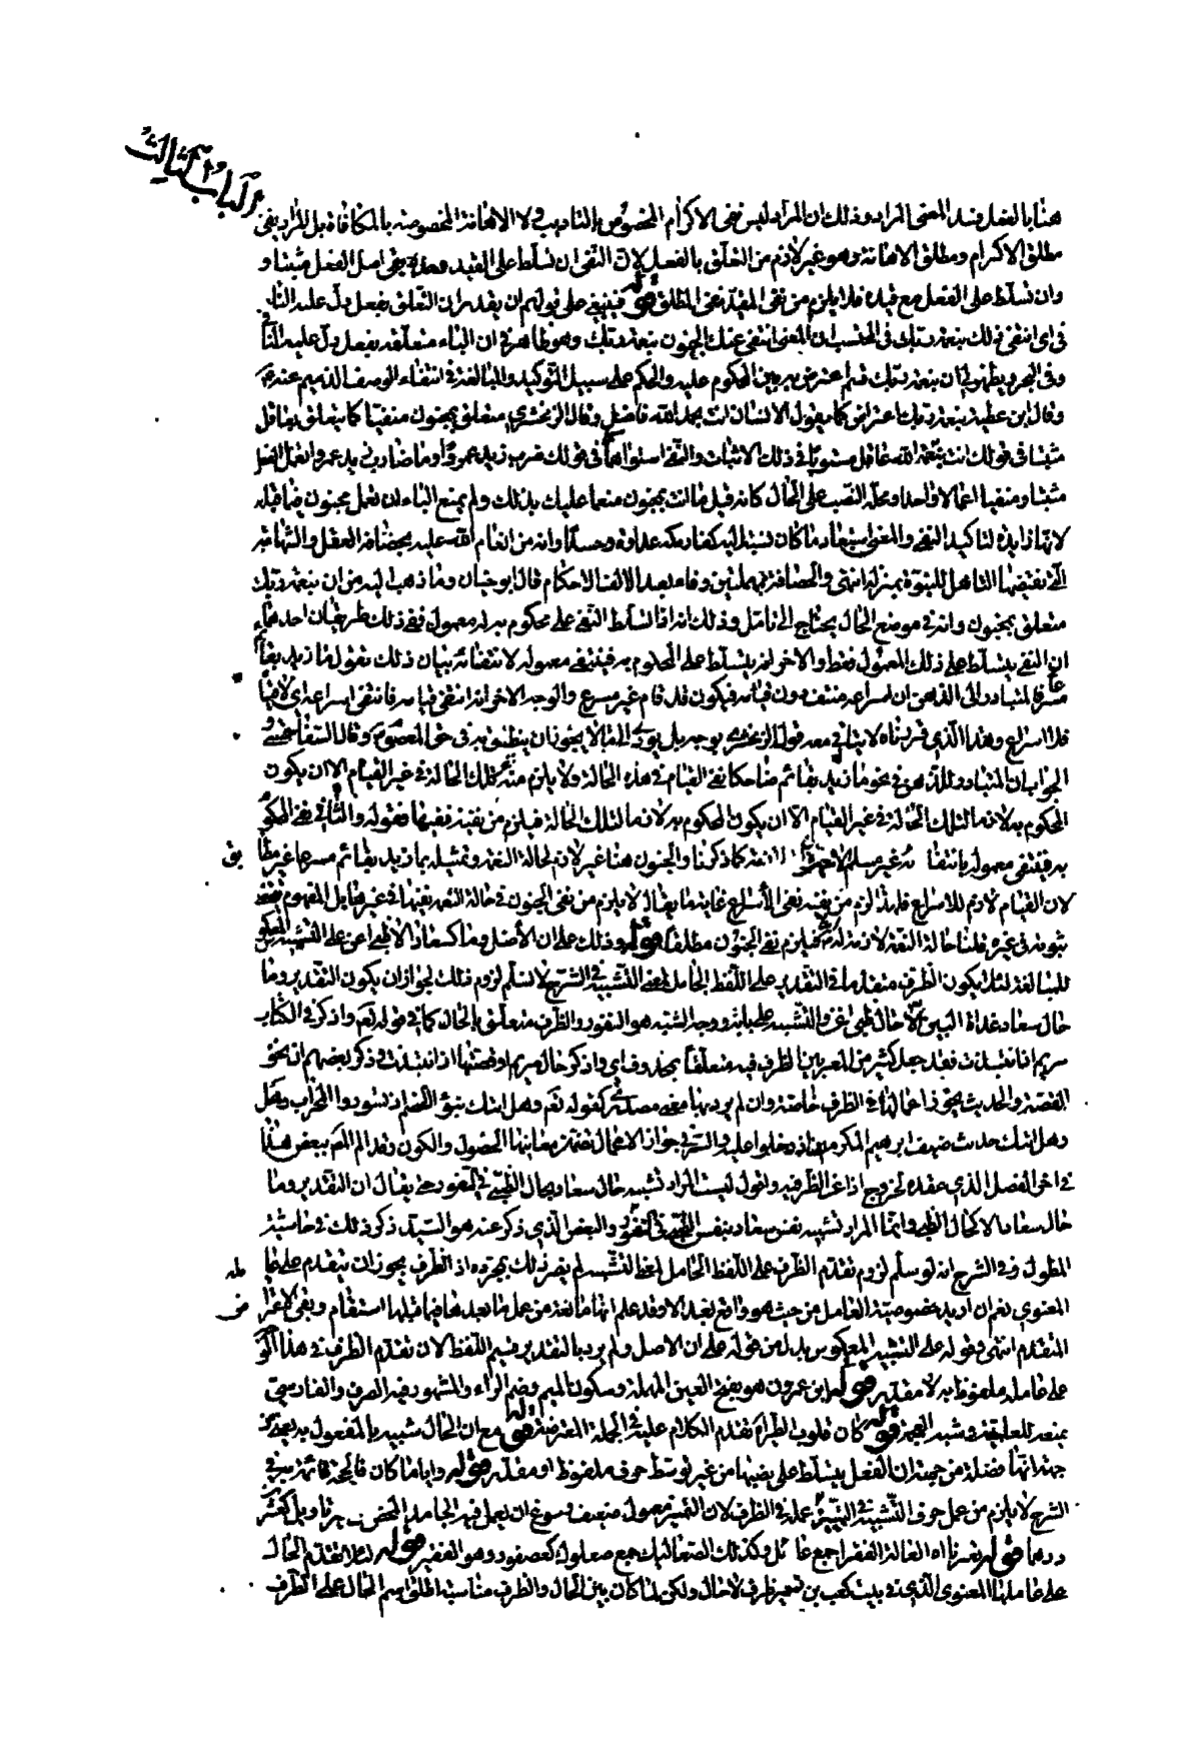 الباب الثالث
هنا بالفعل فسد المعنى المراد وذلك ان المراد ليس نفى الاكرام المخصوص بالتاديب ولا الاهانة المخصوصة بالمكافاة بل المراد نفى
مطلق الاكرام ومطلق الاهانة وهو غير لازم من التعلق بالفعل لان النفى ان تسلط على القيد وحده بقى اصل الفعل مثبتا و
وان تسلط على الفعل مع قيده فلا يلزم من نفى المقيد نفى المطلق قوله فينبغى على قولهم ان يقدر ان التعلق بفعل دل عليه النا
فى اى انتفى ذلك بنعمة ربك فى المعنى انتفى عنك الجنون بنعمة ربك وهو ظاهر فى ان الباء متعلقة بفعل دل عليه النا
وفى البحر ويظهر لى ان بنعمة ربك قسم اعترض به بين المحكوم عليه والحكم على سبيل التوكيد والمبالغة فى انتفاء الوصف الذميم عنه
وقال ابن عطية بنعمة ربك اعتراض كما يقول الانسان انت بحمد الله فاضل وقال الزمخشرى متعلق بمجنون منفيا كما يتعلق بعاقل
مثبتا فى قولك انت بنعمة الله عاقل مستويا فى ذلك الاثبات والنفى استواءهما فى قولك ضرب زيد عمروا وما ضرب زيد عمروا تعمل الفعل
مثبتا ومنفيا اعمالا واحدا ومحله النصب على الحال كانه قيل ما انت بمجنون منعما عليك بذلك ولم يمنع الباء ان تعمل مجنون فيما قبله
لانها زايدة لتاكيد النفى والمعنى استبعاد ما كان ينسبه اليه كفار مكة عداوة وحسدا وانه من انعام الله عليه بحصافة العقل والشهامة
التى تقتضيها التاهل للنبوة بمنزلة انتهى والحصافة بمهملتين وفاء بعد الالف الاحكام قال ابو حيان وما ذهب اليه من ان بنعمة ربك
متعلق بمجنون وانه فى موضع الحال يحتاج الى تامل وذلك انه اذا تسلط النفى على محكوم به له معمول ففى ذلك طريقان احدهما
ان النفى يتسلط على ذلك المعمول فقط والاخر انه يتسلط على المحكوم به فينتفى معموله لانتفائه بيان ذلك تقول ما زيد بقا
مسرعا المتبادر الى الذهن ان اسراعه منتف دون قيامه فيكون قد قام غير مسرع والوجه الاخر انه انتفى قيامه فانتفى اسراعه اى لا قيام
فلا اسراع وهذا الذى قررناه لا يتاتى معه قول الزمخشرى بوجه بل يودى الى ما لا يجوز ان ينطق به فى حق المعصوم وقال السفاقسى
الجواب ان المتبادر للذهن فى نحو ما زيد بقائم ضاحكا نفى القيام فى هذه الحالة ولا يلزم منه تلك الحالة فى غير القيام الا ان يكون
المحكوم به لازما لتلك الحالة فى غير القيام الا ان يكون المحكوم به لازما لتلك الحالة فيلزم من نفيه نفيها فقوله والثانى نفى المحكو
به فينتفى معموله بانتفائه غير مسلم كما ذكرنا والجنون هنا غير لازم لحالة النعمة وتمثيله بما زيد بقائم مسرعا غير مطا
بق
لان القيام لازم للاسراع فلهذا لزم من نفيه نفى الاسراع غاية ما يقال لا يلزم من نفى الجنون فى حالة النعمة نفيها فى غيرها بل المفهوم
ثبوته فى غيره قلنا حالة النعمة لازمة له فيلزم نفى الجنون مطلقا قوله وذلك على ان الاصل وما كسعاد الا ظبى اغن على التشبيه المعكو
للمبالغة لئلا يكون الظرف متقدما فى التقدير على اللفظ الحامل لمعنى التشبيه فى الشرح لا نسلم لزوم ذلك لجواز ان يكون التقدير وما
حال سعاد غداة البين الا حال ظبى اغن والتشبيه على بابه ووجه الشبه هو النفور والظرف متعلق بالحال كما فى قوله تعالى واذكر فى الكتاب
مريم اذ انتبذت فقد جعل كثير من المعربين الظرف فيه متعلقا بمحذوف اى واذكر حال مريم او قصتها اذ انتبذت وذكر بعضهم ان نحو
القصة والحديث يجوز اعمالها فى الظرف خاصة وان لم يرد بها معنى مصدر كقوله تعالى وهل اتاك نبؤ الخصم اذ تسوروا المحراب وهل
وهل اتيك حديث ضيف ابرهيم المكرمين اذ دخلوا عليه والسر فى جواز الاعمال تضمن معانيها الحصول والكون وقد الم المص ببعض هذا
فى اخر الفصل الذى عقده لخروج اذ عن الظرفية واقول ليس المراد تشبيه حال سعاد بحال الظبى فى النفور حتى يقال ان التقدير وما
حال سعاد الا كحال الظبى وانما المراد تشبيه نفس سعاد بنفس الظبى فى النفور والبعض الذى ذكر عنه هو السيد ذكر ذلك فى حاشية
المطول وفى الشرح انه لو سلم لزوم تقدم الظرف على اللفظ الحامل لمعنى التشبيه لم يضر ذلك بمجرده اذ الظرف يجوز ان يتقدم على عا
مله
المعنوى نعم ان اريد خصوصية العامل من حيث هو واقع بعد الا وقد علم انها مانعة من عمل ما بعدها فيما قبلها استقام وبقى الاعتراض
المتقدم انتهى وقوله على التشبيه المعكوس بدل من قوله على ان الاصل ولم يرد بالتقدير قسيم اللفظ لان تقدم الظرف فى هذا
على عامله ملفوظ به لا مقدر قوله ابن عمرون هو بفتح العين المهملة وسكون الميم وضم الراء والمشهور فيه الصرف والفارسى
يمنعه للعلمية وشبه العجمة قوله كان قلوب الطير تقدم الكلام عليه فى الجملة المعترضة قوله مع ان الحال شبيه بالمفعول به يعنى
جهة انها فضلة من جهة ان الفعل يتسلط على نصبها من غير توسط حرف ملفوظ او مقدر قوله واياما كان
الشرح لا يلزم من عمل حرف التشبيه فى التمييز عمله فى الظرف لان التمييز معمول ضعيف وسوغ ان يعمل فيه الجامد المحض
درهما قوله العالة الفقرا جمع عائل وكذلك الصعاليك جمع صعلوك كعصفور وهو الفقير قوله لئلا تقدم الحال
على عاملها المعنوى الذى فى بيت كعب بن زهير ظرف لا حال ولكن لما كان بين الحال والظرف مناسبة اطلق اسم الحال على الظرف